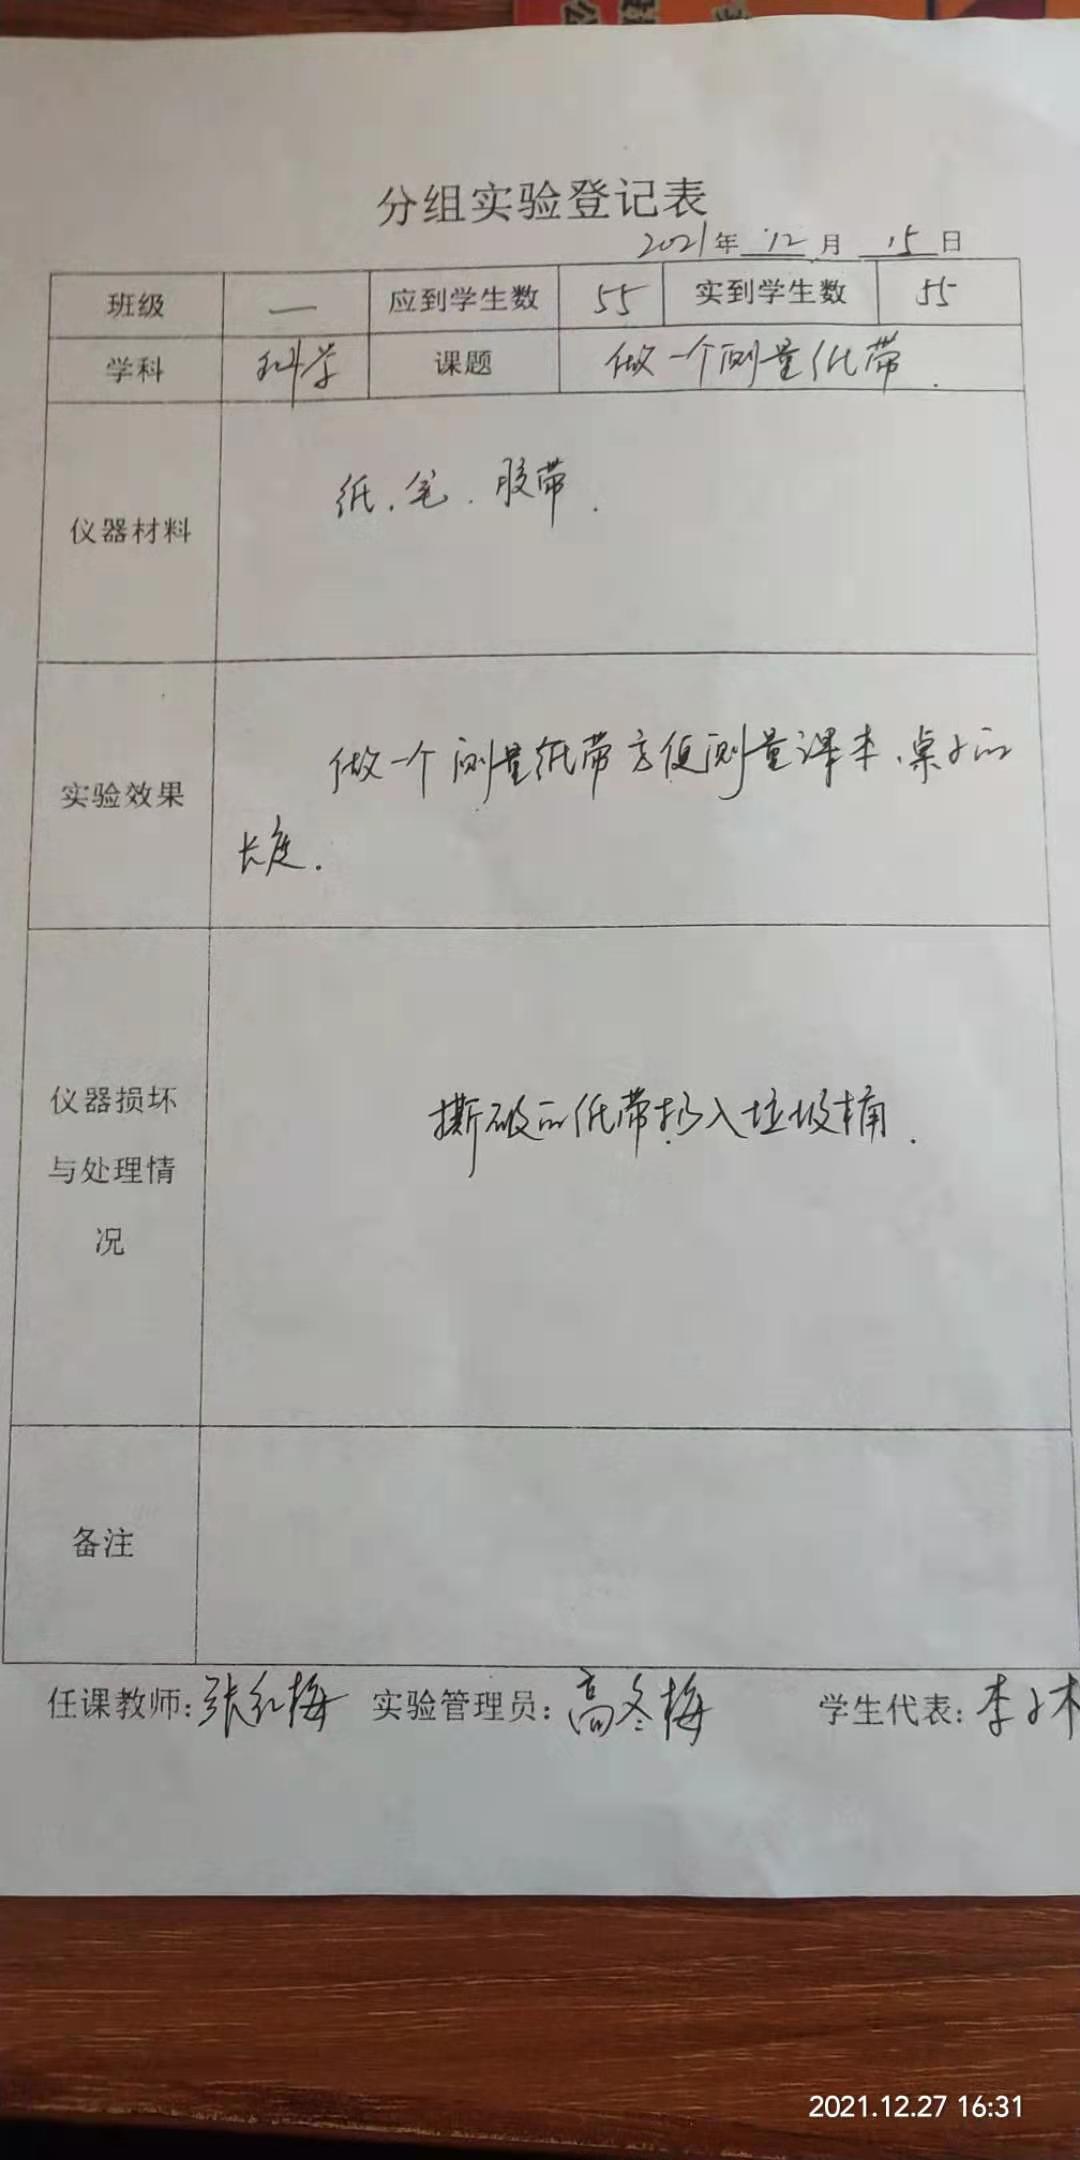 分组实验登记表
2021年 12 月 15 日
班级 一 应到学生数 55 实到学生数 55
学科 科学 课题 做一个测量纸带.
仪器材料 纸.笔.胶带.
实验效果 做一个测量纸带方便测量课本、桌子的
长度.
仪器损坏
与处理情
况
撕破的纸带扔入垃圾桶.
备注
任课教师:张红梅 实验管理员:高冬梅 学生代表:李子木
2021.12.27 16:31